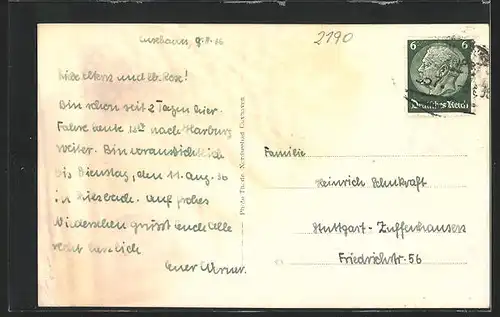 Cuxhaven, 9.8.36
2190
Liebe Eltern und lb. Rose!
Bin schon seit 2 Tagen hier.
Fahre heute 18 nach Harburg
weiter. Bin voraussichtlich
bis Dienstag, den 11. Aug. 36
in Auf frohes
Wiedersehen grüsst Euch Alle
recht herzlich
Euer Werner.
Photo Thiele, Nordseebad Cuxhaven
6 6
Deutsches Reich
Familie
Heinrich Schukraft
Stuttgart-Zuffenhausen
Friedrichstr. 56